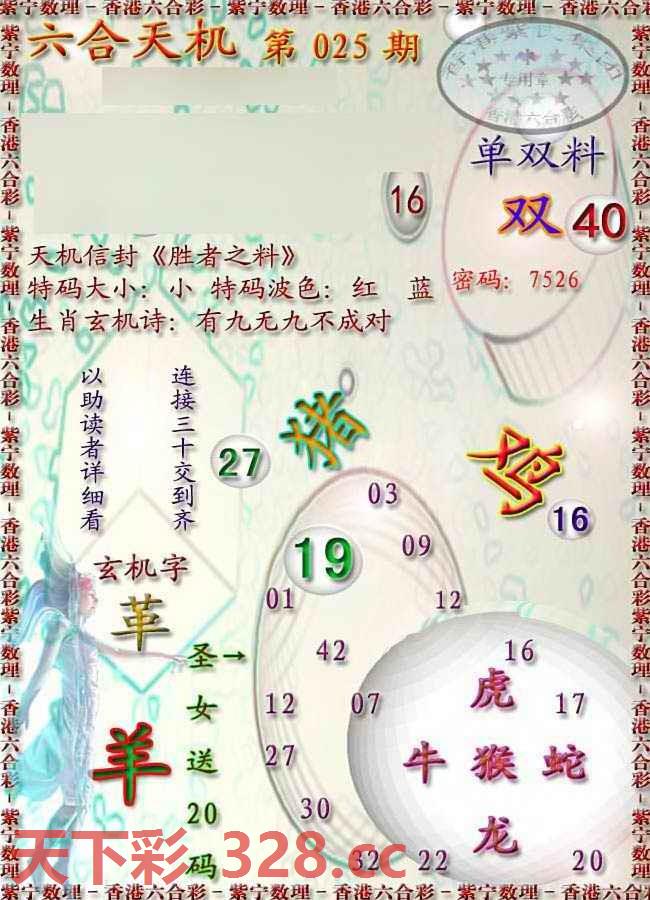 紫宁数理－香港六合彩－紫宁数理－香港六合彩－紫宁数理－香港六合彩
六合天机 第 025 期
专用章
香港六合彩
单双料
16
双 40
天机信封《胜者之料》
特码大小：小 特码波色：红 蓝
密码：7526
生肖玄机诗：有九无九不成对
以助读者详细看
连接三十交到齐
27
猪
鸡
16
03
19
09
玄机字
革
01
12
圣→
女
送
20
码
42
16
虎
12
07
17
羊
27
牛 猴 蛇
30
龙
32
22
20
天下彩.328.cc
紫宁数理－香港六合彩－紫宁数理－香港六合彩－紫宁数理－香港六合彩